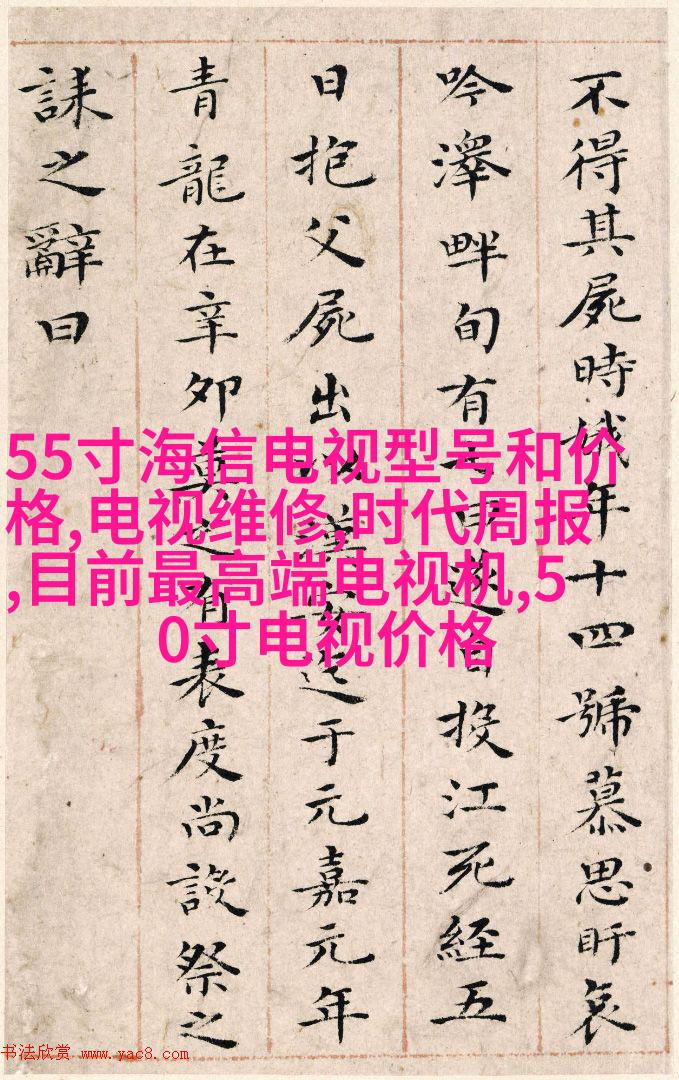 不得其屍時娥年十四號慕思盱哀
吟澤畔旬有七日遂自投江死經五
日抱父屍出以漢安迄于元嘉元年
青龍在辛卯莫之有表度尚設祭之
誄之辭曰
55寸海信电视型号和价
格,电视维修,时代周报
,目前最高端电视机,5
0寸电视价格
书法欣赏 www.yac8.com